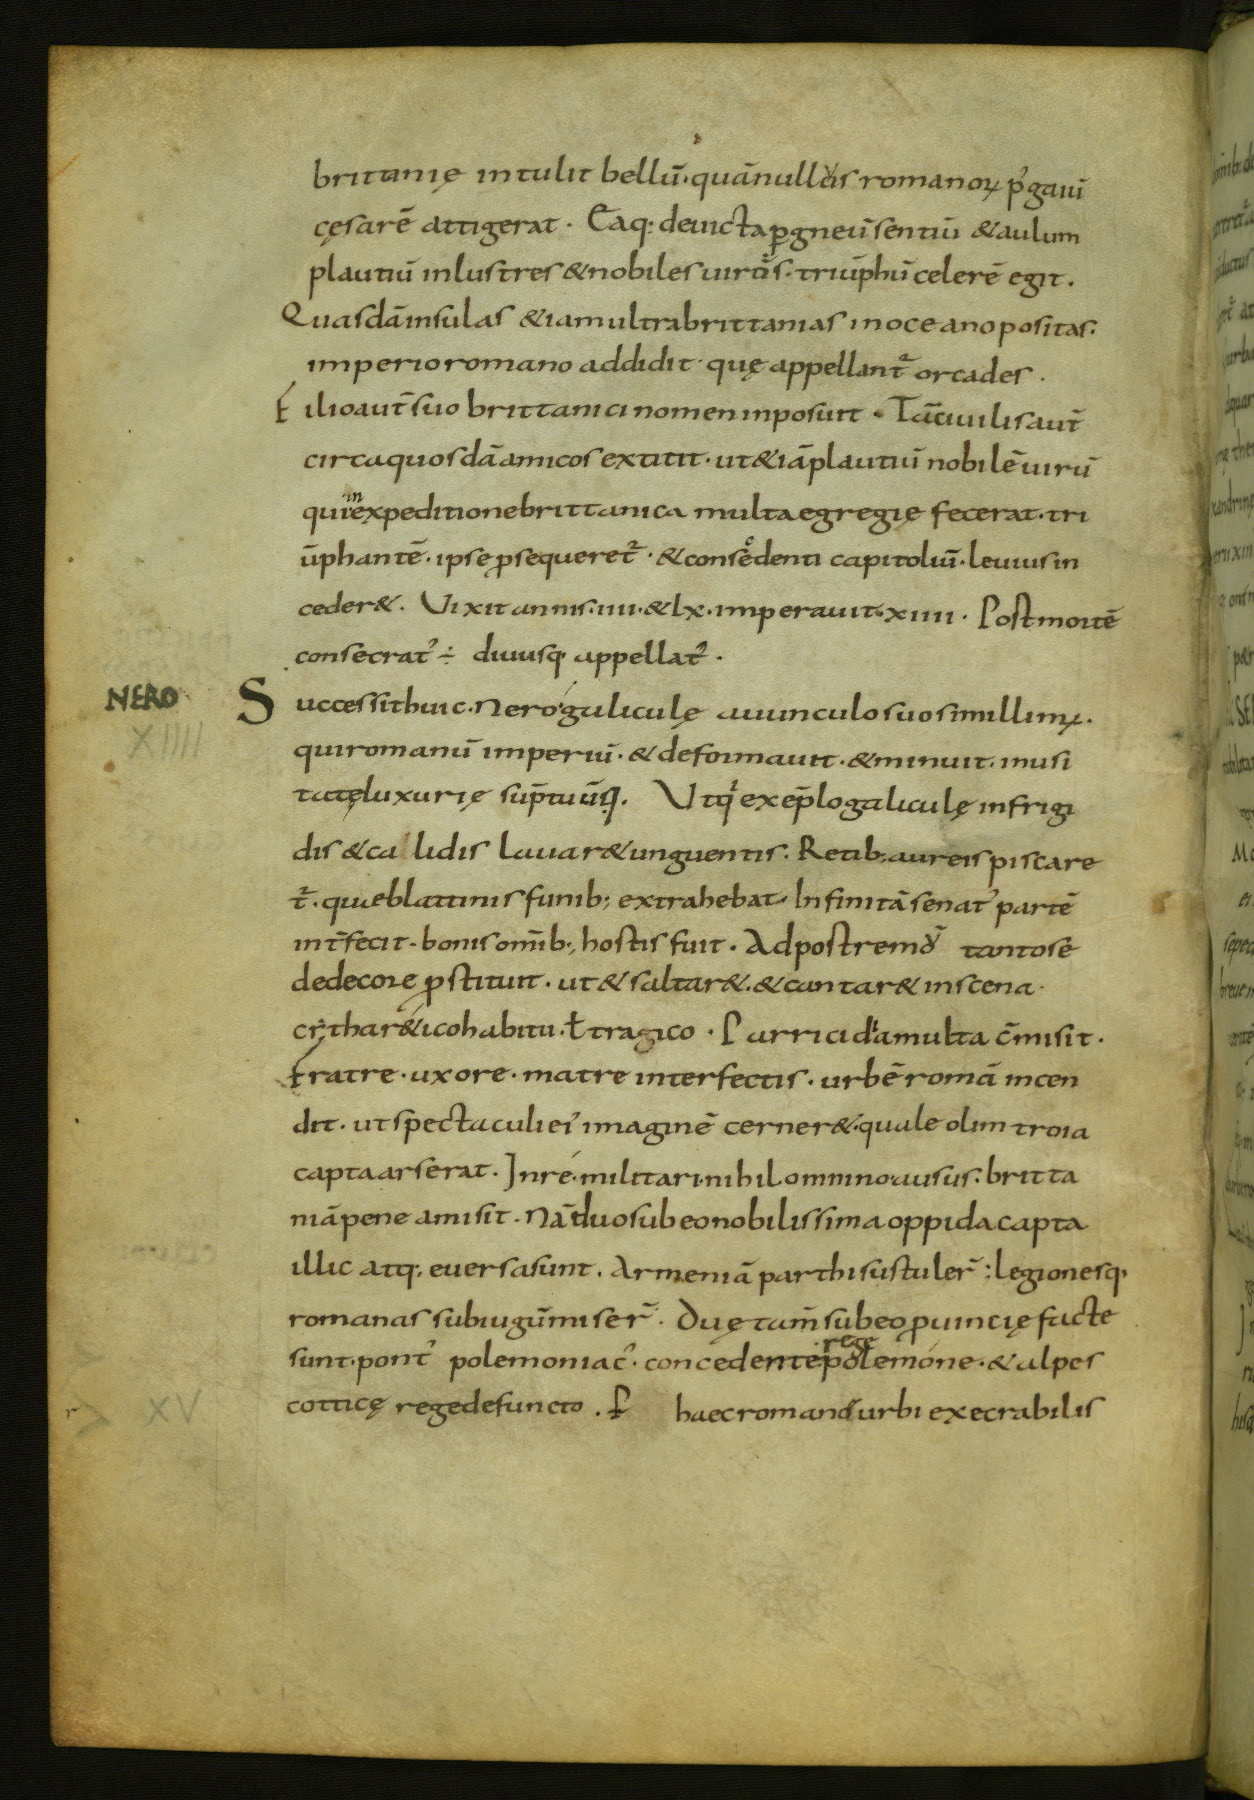 brittanię intulit bellū· quā nullus romanoꝝ p' gaiū
cęsarē attigerat · Eaq: deuicta ꝑ gneū sentiū & aulum
plautiū inlustres & nobiles uiros· triūphū celerē egit .
Quasdā insulas &iam ultra brittanias in oceano positas:
imperio romano addidit· quę appellant᷑ orcades .
Filio aut̄ suo brittanici nomen inposuit · Tā ciuilis aut̄
circa quosdā amicos extitit · ut &iā plautiū nobilē uirū
qui in expeditione brittanica multa egregię fecerat · tri
ūphantē · ipse ꝓsequeret᷑ · & conscēdenti capitoliū· leuius in
ceder& . Vixit annis· IIII· & lx· imperauit· xIIII · Post mortē
consecrat' ÷ diuusq· appellat' ·
NERO
Successit huic· nero· galiculę auunculo suo simillimꝰ·
qui romanū imperiū· & deformauit · & minuit· inusi
tatę luxurię sūptuūsq· Vtq' exēplo galiculę in frigi
dis & calidis lauar& unguentis· Retib; aureis piscare
t᷑ · que blattinis funib; extrahebat· Infinitā senat' partē
int̄fecit · bonis omīb; hostis fuit · Ad postremū tanto sē
dedecore ꝓstituit · ut & saltar& · & cantar& in scena·
cytharędico habitu· ł tragico · Parricidia multa c̄misit ·
Fratre · uxore · matre interfectis · urbē romā incen
dit · ut spectaculi ei' imaginē cerner& · quale olim troia
capta arserat · In re· militari· nihil omnino ausus: britta
niā pene amisit · Nā duo sub eo nobilissima oppida capta
illic atq; euersa sunt · Armeniā parthi sustuler̄ : legionesq·
romanas sub iugū miser̄ · Duę tam̄ sub eo ꝓuincię facte
sunt· pont' polemoniac' · concedente rege polemone · & alpes
cottię rege defuncto · P haec romano urbi execrabilis